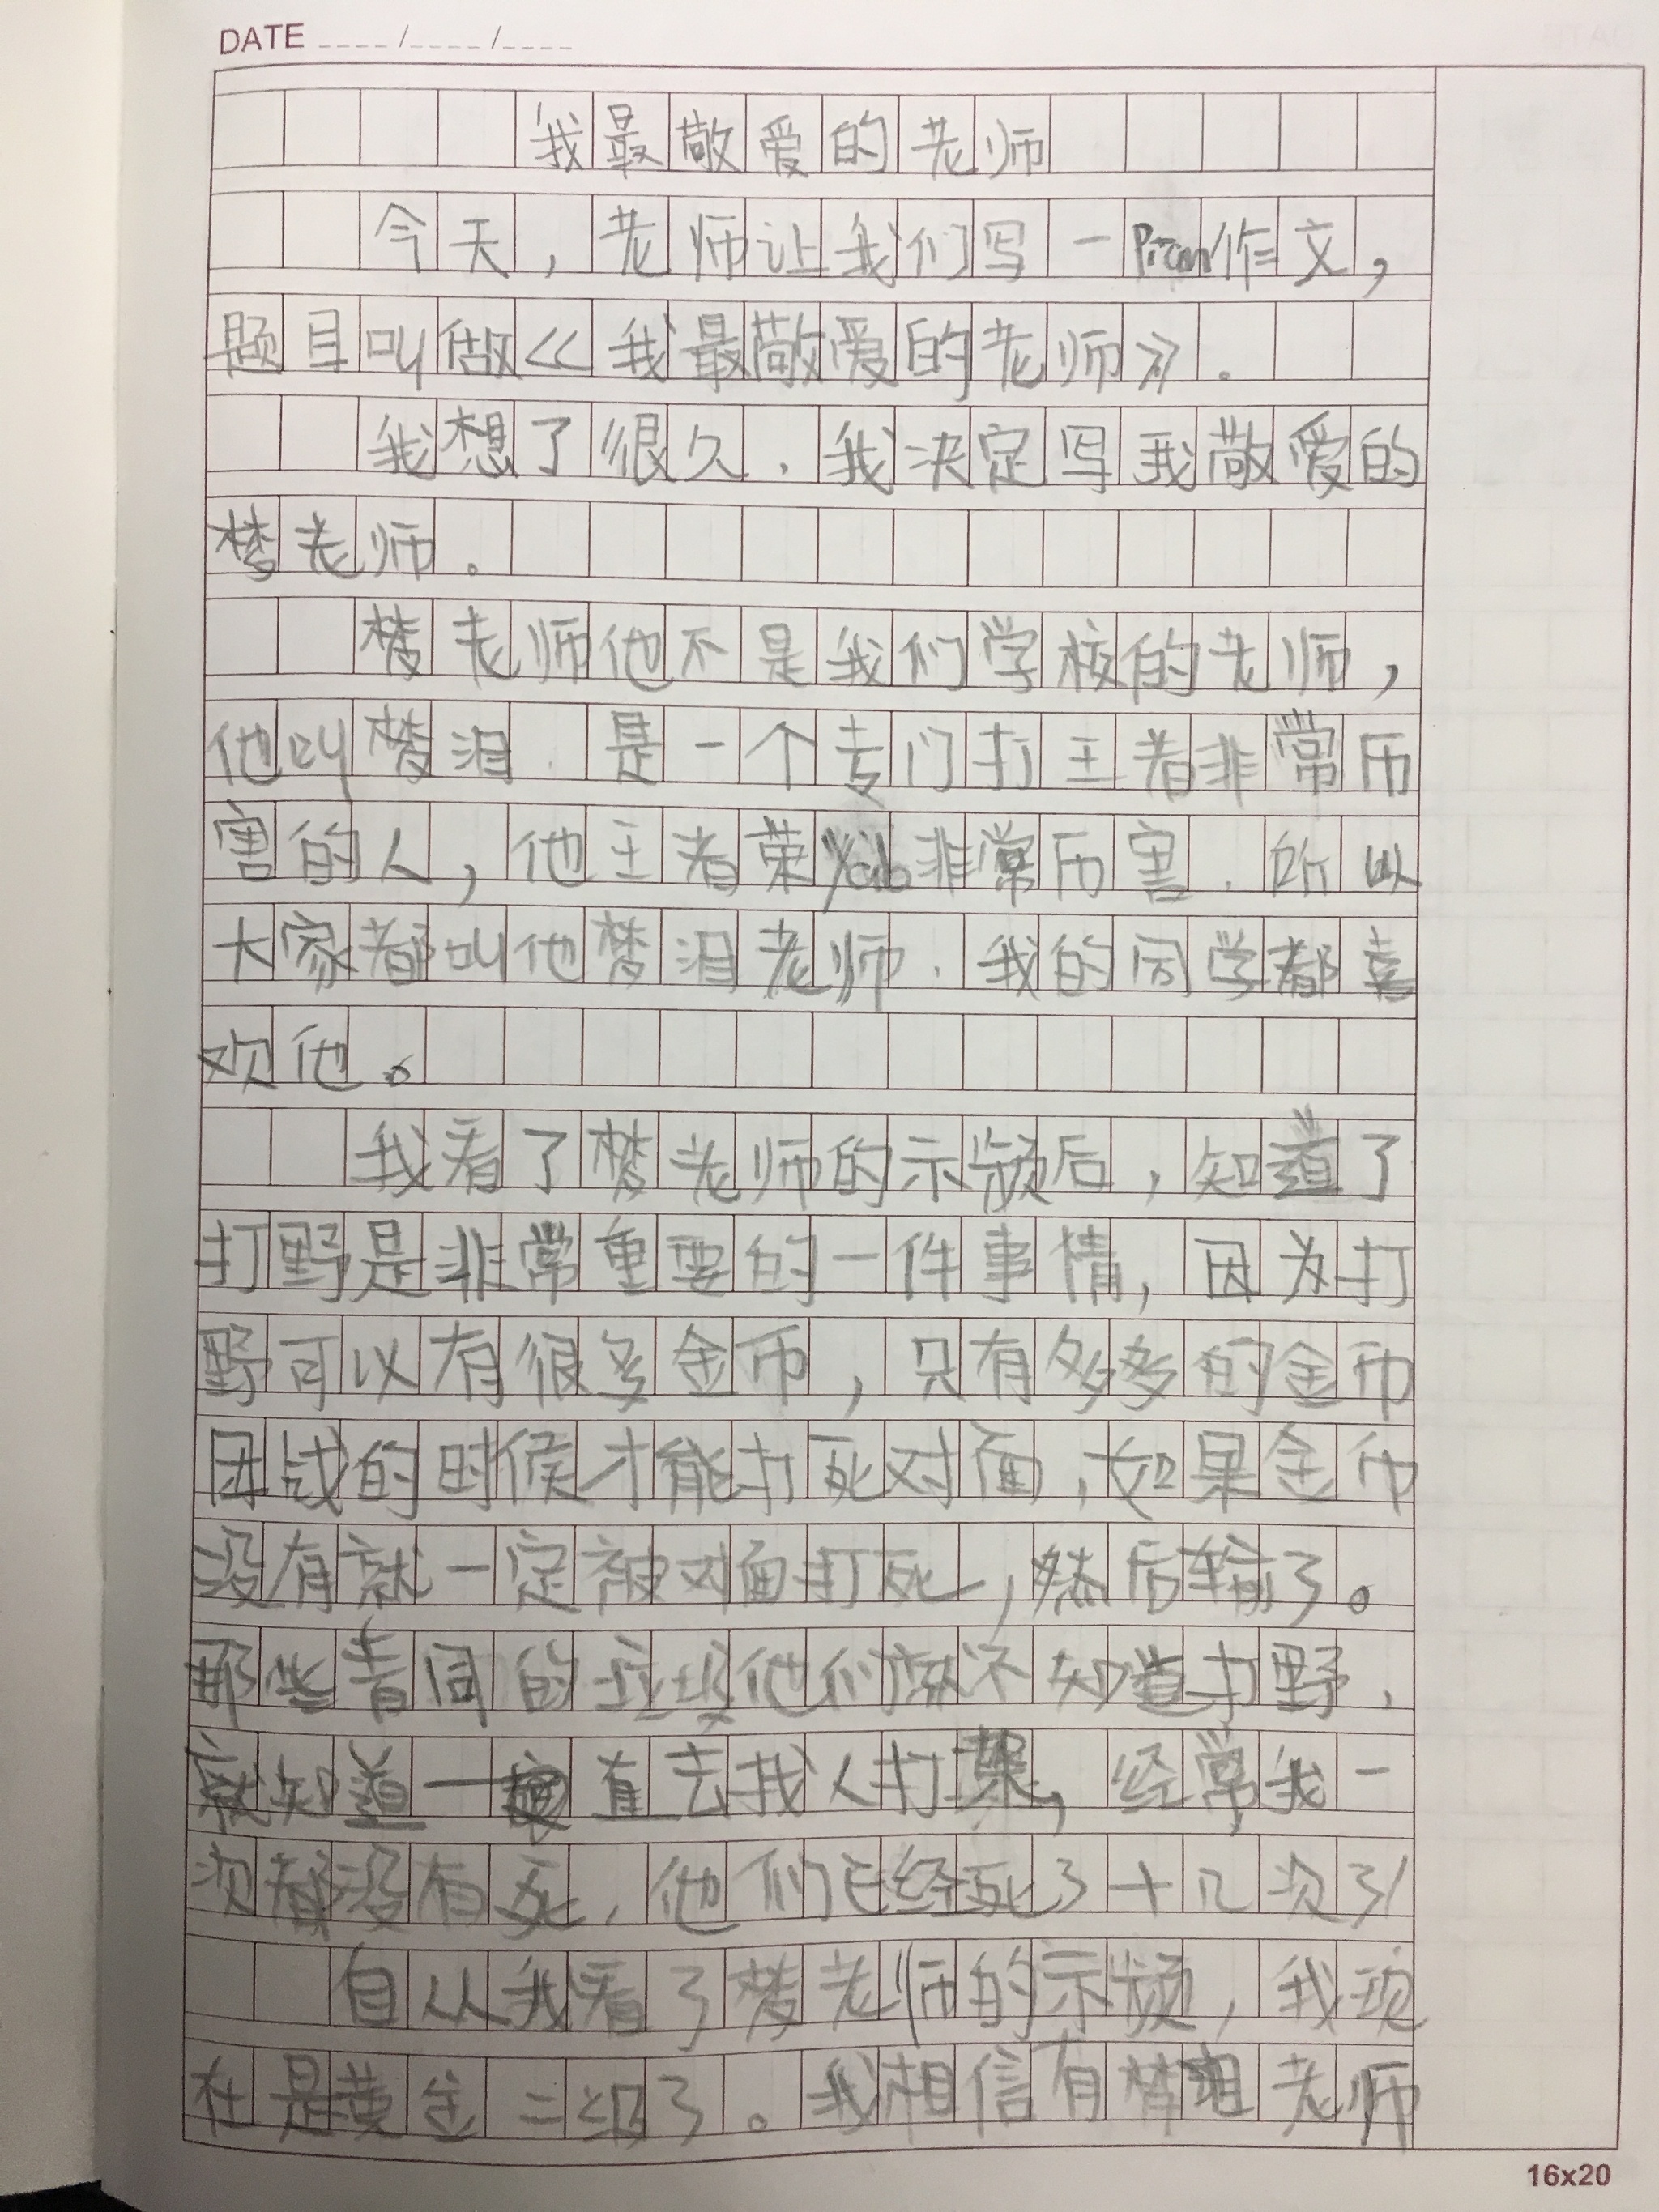 DATE ____/____/____
我最敬爱的老师
今天，老师让我们写一Pian作文，
题目叫做《我最敬爱的老师》。
我想了很久，我决定写我敬爱的
梦老师。
梦老师他不是我们学校的老师，
他叫梦泪，是一个专门打王者非常历
害的人，他王者荣yao非常历害，所以
大家都叫他梦泪老师，我的同学都喜
欢他。
我看了梦老师的示频后，知道了
打野是非常重要的一件事情，因为打
野可以有很多金币，只有多多的金币
团战的时候才能打死对面，如果金币
没有就一定被对面打死，然后输了。
那些青同的垃圾他们就不知道打野，
就知道一直去找人打架，经常我一
次都没有死，他们已经死了十几次了！
自从我看了梦老师的示频，我现
在是黄金二级了。我相信有梦泪老师
16x20